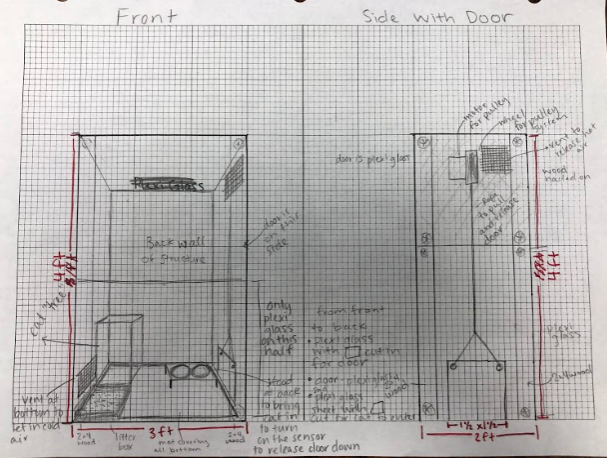 Front
Side With Door
motor for pulley
wheel for pulley system
vent to release hot air
door is plexi glass
wood nailed on
Plexi Glass
Back Wall
of Structure
door is on this side
rope to pull and release door
4 ft
4 ft
cat "tree"
only
plexi
glass
on this
half
from front
to back
• plexi glass
with
cut in
for door
• door - plexi glass
wood
glass
sheet with
cut for cat to enter
plexi
glass
2x4 wood
vent at
bottom to
let in cool
air
to bring
cat in
to turn
on the sensor
to release door down
2x4
wood
litter
box
3 ft
mat covering
all bottom
2x4
wood
1 1/2 x 1 1/2
2 ft